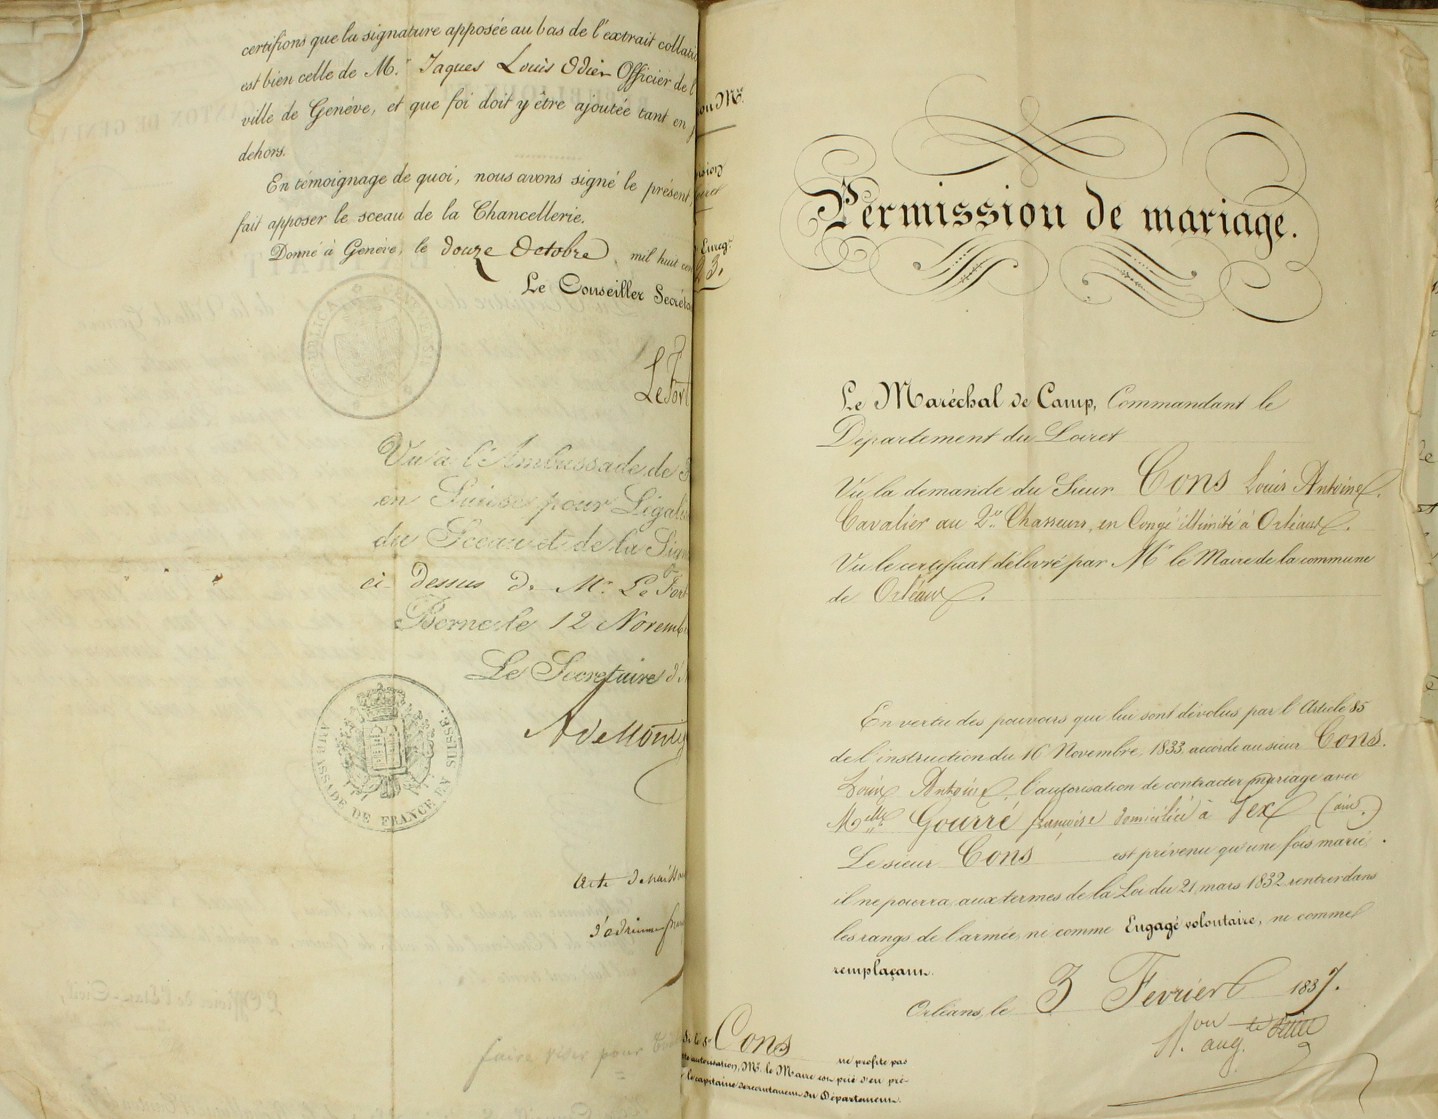 certifions que la signature apposée au bas de l'extrait
est bien celle de Mr. Jaques Louis Odier Officier de l
ville de Genève, et que foi doit y être ajoutée tant en
dehors.
En témoignage de quoi, nous avons signé le présent
fait apposer le sceau de la Chancellerie.
Donné à Genève, le douze Octobre, mil huit cen
Le Conseiller
LeFort
Vu à l'Ambassade de
en Suisse pour
du Sceau et de la
ci-dessus de Mr. Le Fort
Berne le 12 Novemb
Le Secretaire d'
AMBASSADE DE FRANCE EN SUISSE
Permission de mariage.
Le Maréchal de Camp, Commandant le
Département du Loiret
Vu la demande du Sieur Cons Louis Antoine
Cavalier au 2e Chasseurs, en Congé illimité à Orléans.
Vu le certificat délivré par Mr le Maire de la commune
de Orléans.
En vertu des pouvoirs qui lui sont dévolus par l'Article 85
de l'instruction du 16 Novembre 1833, accorde au sieur Cons.
Louis Antoine, l'autorisation de contracter mariage avec
Melle Gourré françoise domiciliée à Gex (ain)
Le sieur Cons est prévenu qu'une fois marié
il ne pourra, aux termes de la Loi du 21 mars 1832, rentrer dans
les rangs de l'armée, ni comme Engagé volontaire, ni comme
remplaçant.
Orléans, le 3 Fevrier 1837.
Cons ne profite pas
autorisation, Mr. le Maire est prié d'en pré-
le capitaine de recrutement du Département.